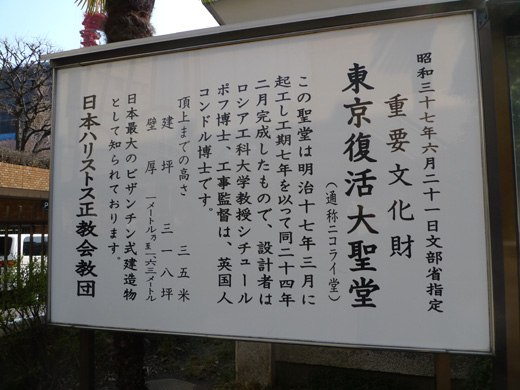 昭和三十七年六月二十一日文部省指定
重要文化財
東京復活大聖堂
(通称ニコライ堂)
この聖堂は明治十七年三月に
起工し工期七年を以って同二十四年
二月完成したもので、設計者は
ロシア工科大学教授シチュール
ポフ博士、工事監督は、英国人
コンドル博士です。
頂上までの高さ 三五米
建坪 三一八坪
壁厚 一メートル乃至一・六三メートル
日本最大のビザンチン式建造物
として知られております。
日本ハリストス正教会教団